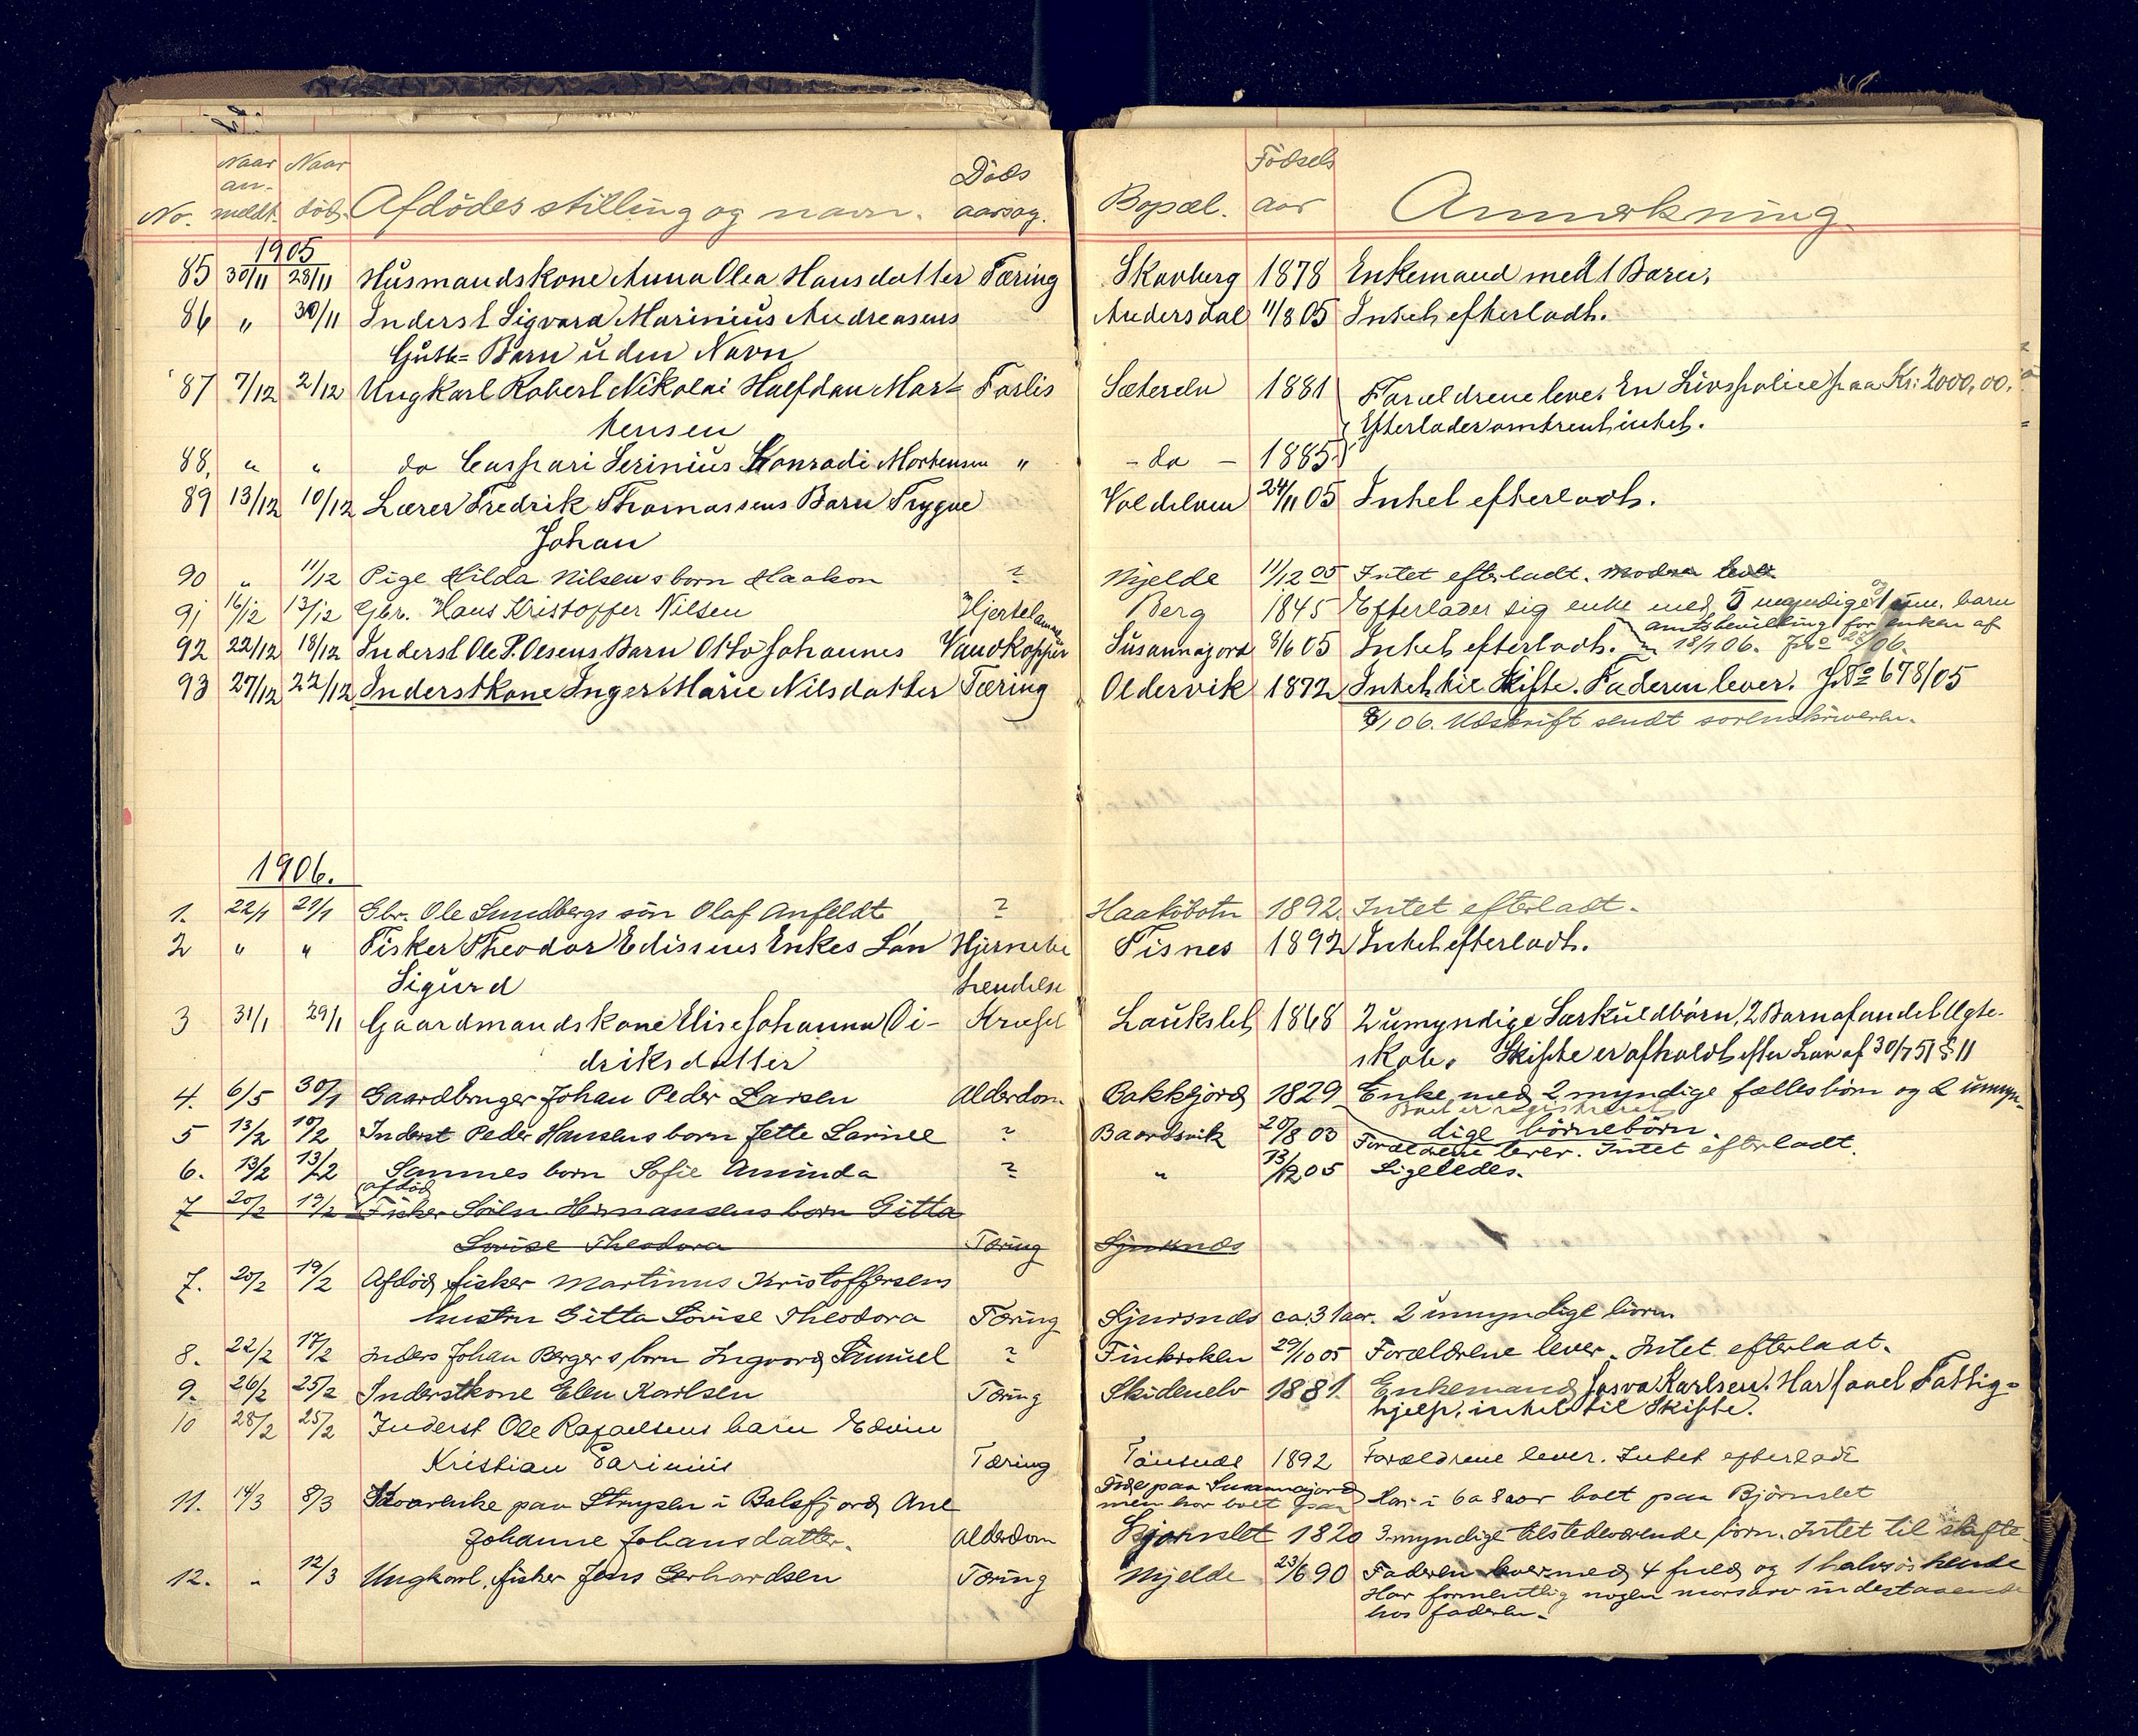 No. Naar an- meldt. Naar död. Afdödes stilling og navn. Döds aarsag. Bopæl. Födsels aar Anmærkning.
1905
85 30/11 28/11 Husmandskone Anna Olea Hansdatter Tæring Skavberg 1878 Enkemand med 1 Barn,
86 " 30/11 Inderst Sigvard Marinius Andreasens Andersdal 11/8 05 Intet efterladt.
Gutte= Barn uden Navn
87 7/12 2/12 Ungkarl Robert Nikolai Halfdan Mor= Forlis Sæterelv 1881 Forældrene lever. En Livspolice paa Kr: 2000,00.
tensen Efterlader omtrent intet.
88, " " do Caspari Serinius Konradi Mortensen " - do - 1885
89 13/12 10/12 Lærer Fredrik Thomassens Barn Trygve Voldelven 24/11 05 Intet efterladt.
Johan
90 " 11/12 Pige Hilda Nilsens born Haakon ? Mjelde 11/12 05 Intet efterladt. Modren lever
91 16/12 13/12 Gbr. Hans Kristoffer Nilsen Hjertelamme Berg 1845 Efterlader sig enke med 3 myndige og 1 um. barn
amtsbevilling for enken af
92 22/12 18/12 Inderst Ole P. Olsens Barn Otto Johannes Vandkopper Susannajord 8/6 05 Intet efterladt. 18/1 06.
93 27/12 22/12 Inderstkone Inger Marie Nilsdatter Tæring Oldervik 1872 Intet til Skifte. Faderen lever. J.No 678/05
8/1 06. Udskrift sendt sorenskriveren.
1906.
1. 22/1 21/1 Gbr. Ole Sundbergs sön Olaf Anfeldt ? Haaköbotn 1892. Intet efterladt.
2 " " Fisker Theodor Edissens Enkes Sön Hjernebe Tisnes 1892 Intet efterladt.
Sigurd tendelse
3 31/1 29/1 Gaardmandskone Elise Johanna Di- Kræft Laukslet 1868 2 umyndige Særkuldbörn, 2 Barn af andet Ægte-
driksdatter skab. Skifte er afholdt efter Lov af 30/7 51 § 11
4. 6/5 30/1 Gaardbruger Johan Peder Larsen Alderdom Bakkejord 1829 Enke med 2 myndige fællesbörn og 2 umyn-
Boet er registreret
5 13/2 10/2 Inderst Peder Hansens born Jette Larine ? Baardsvik 20/8 03 dige börnebörn.
Forældrene lever. Intet efterladt.
6. 13/2 13/2 Sammes born Sofie Aminda ? " 13/12 05 Ligeledes.
afdöd
7 20/2 19/2 Fisker Sören Hermansens born Gitta
Lovise Theodora Tæring Sjursnes
7. 20/2 19/2 Afdöd fisker Martinus Kristoffersens
hustru Gitta Lovise Theodora Tæring Sjursnes ca. 31 aar. 2 umyndige börn.
8. 22/2 17/2 Inders Johan Bergers born Ingvard Samuel ? Finkroken 29/10 05 Forældrene lever. Intet efterladt.
9. 26/2 25/2 Inderstkone Elen Karlsen Tæring Skidenelv 1881. Enkemand Josva Karlsen. Har faaet Fattig=
hjelp, intet til Skifte.
10 28/2 25/2 Inderst Ole Rafaelsens barn Edvin
Kristian Parinius Tæring Tönsnes 1892 Forældrene lever. Intet efterladt
11. 14/3 8/3 Föderaadsenke paa Strupen i Balsfjord Ane Döde paa Susannajord Har i 6 a 8 aar boet paa Björnslet
men har boet paa
Johanne Johansdatter. Alderdom Bjornslet 1820 3 myndige tilstedeværende börn. Intet til skifte.
12. " 12/3 Ungkarl, fisker Jens Gerhardsen Tæring Mjelde 23/6 90 Faderen lever med 4 fuld og 1 halvsöskende
Har formentlig nogen morsarv indestaaende
hos faderen.